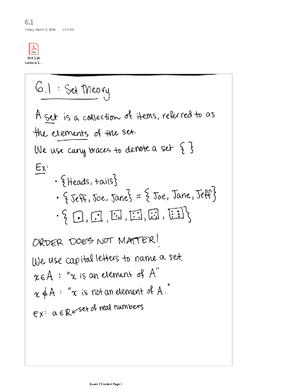 6.1
Friday, March 6, 2020
Lecture 1...
6.1 : Set Theory
A set is a collection of items, referred to as
the elements of the set.
We use curvy braces to denote a set { }
Ex:
• {Heads, tails}
• {Jeff, Joe, Jane} = {Joe, Jane, Jeff}
• {⚀, ⚁, ⚂, ⚃, ⚄, ⚅}
ORDER DOES NOT MATTER!
We use capital letters to name a set
x∈A : "x is an element of A"
x∉A : "x is not an element of A."
Ex: a∈ℝ ← set of real numbers